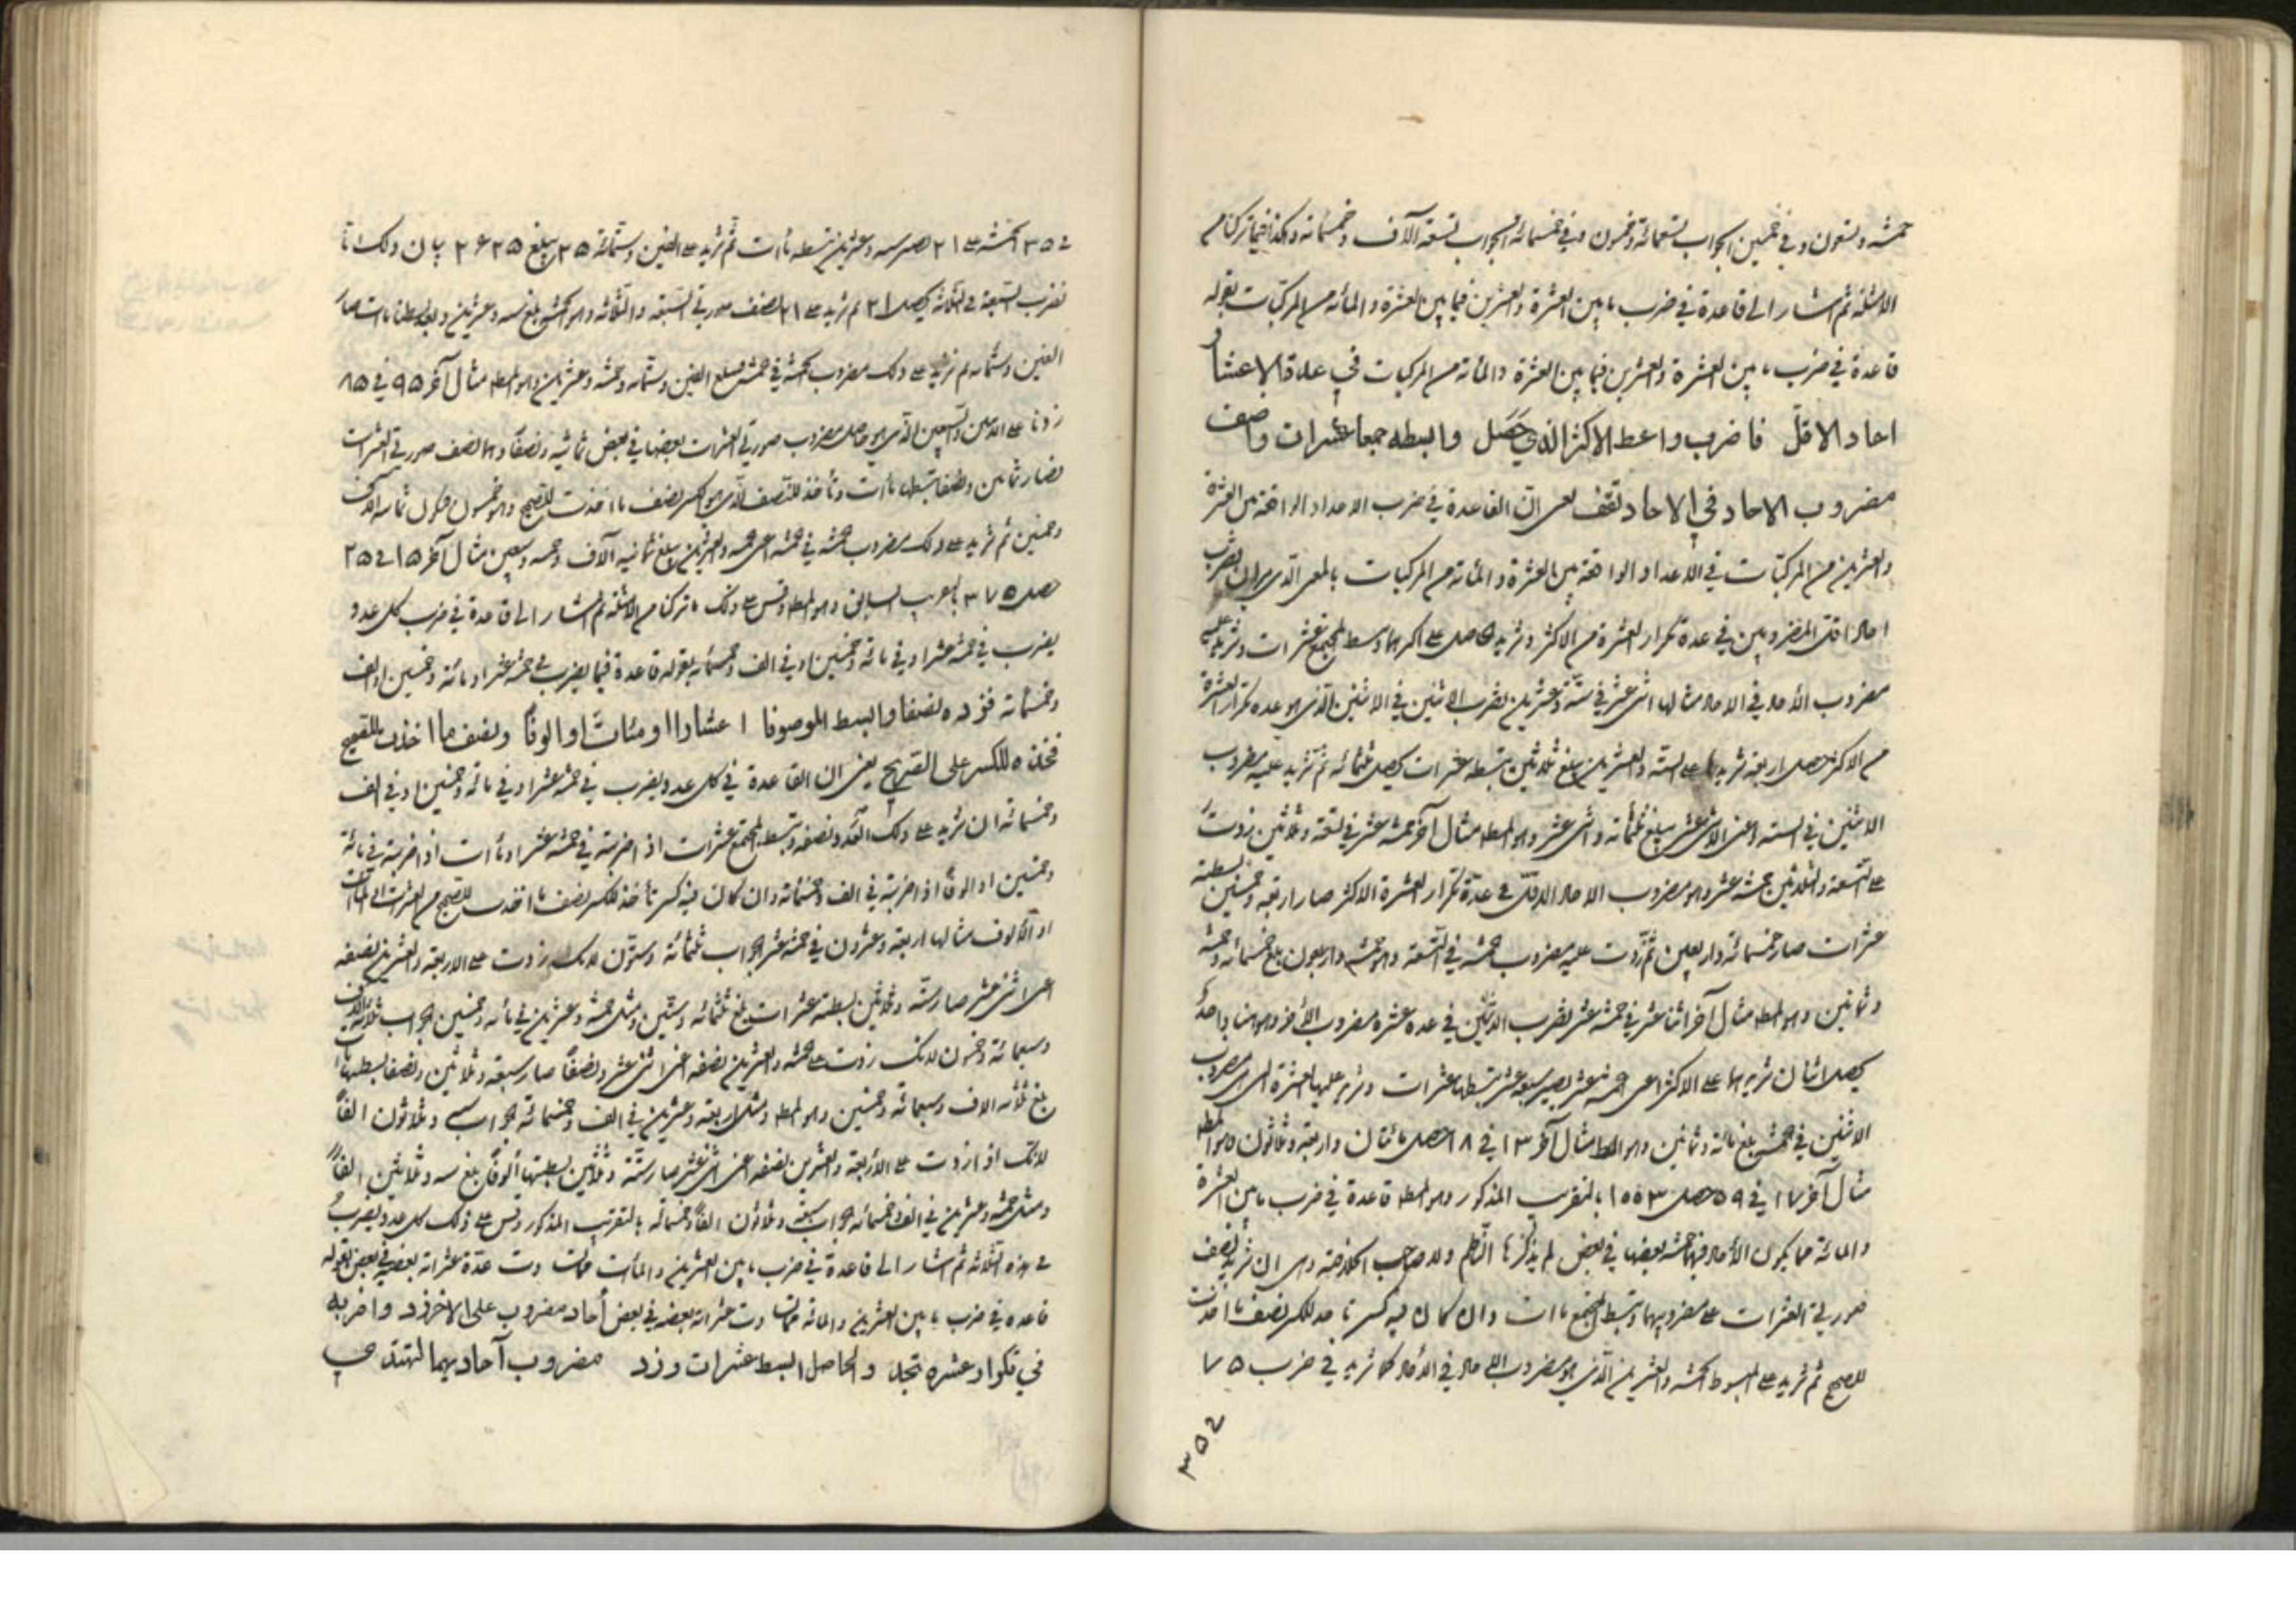 خمسة وتسعون وفي خمسين الجواب تسعمائة وخمسون وفي خمسمائة الجواب تسعة آلاف وخمسمائة وكذا فيما تركنا من
الامثلة ثم اشار الى قاعدة في ضرب ما بين العشرة والعشرين فيما بين العشرة والمائة من المركبات بقوله
قاعدة في ضرب ما بين العشرة والعشرين فيما بين العشرة والمائة من المركبات في عدة الاعشار
احاد الاقل فاضرب واعط الاكثر الذي حصل وابسطه جمعا عشرات واضف
مضروب الاحاد في الاحاد تقف يعني ان القاعدة في ضرب الاعداد الواقعة بين العشرة
والعشرين من المركبات في الاعداد الواقعة بين العشرة والمائة من المركبات بالمعنى الذي ان يضرب
احاد اقل المضروبين في عدة تكرار العشرة من الاكثر وتزيد الحاصل على اكثرهما وتبسط المجتمع عشرات وتزيد عليه
مضروب الآحاد في الاحاد مثالها اثنى عشر في ستة وعشرين تضرب الاثنين في الاثنين الذي هو عدة تكرار العشرة
من الاكثر يحصل اربعة تزيدها على الستة والعشرين يبلغ ثلاثين تبسطه عشرات يحصل ثلثمائة ثم تزيد عليه مضروب
الاثنين في الستة اعني الاثنى عشر يبلغ ثلثمائة واثنى عشر وهو المط مثال آخر خمسة عشر في تسعة وثلاثين زدت
على التسعة والثلاثين خمسة عشر وهو مضروب الاحاد الاقل في عدة تكرار العشرة الاكثر صار اربعة وخمسين بسطته
عشرات صار خمسمائة واربعين ثم زدت عليه مضروب خمسة في التسعة وهو خمسة واربعون بلغ خمسمائة وخمسة
وثمانين وهو المط مثال آخر اثنا عشر في خمسة عشر يضرب الاثنين في عدة عشرة مضروب الآخر وهو هنا واحد
يحصل اثنان تزيدهما على الاكثر اعني خمسة عشر يصير سبعة عشر تبسطها عشرات وتزيد عليها العشرة التي هي مضروب
الاثنين في خمسة بلغ مائة وثمانين وهو المط مثال آخر ١٣ في ١٨ حصل مائتان واربعة وثلاثون وهو المط
مثال آخر ١٧ في ٥٩ حصل ١٠٠٣ بالتقريب المذكور وهو المط قاعدة في ضرب ما بين العشرة
والمائة مما يكون الآحاد فيها خمسة بعضها في بعض لم يذكرها الناظم ولا صاحب الخلاصة وهي ان تزيد نصف
صورتي العشرات على مضروبهما وتبسط المجتمع مآت وان كان فيه كسر تاخذ للكسر نصف ما اخذت
للصحيح ثم تزيد على المبسوط الخمسة والعشرين الذي هو مضروب الآحاد في الآحاد كما تزيد في ضرب ٧٥
٣٥٢
في ٣٥ الخمسة على ٢١ يصير ستة وعشرين تبسطه مآت ثم تزيد على الفين وستمائة ٢٥ يبلغ ٢٦٢٥ بيان ذلك انا
نضرب السبعة في الثلاثة يحصل ٢١ ثم نزيد على ٢١ نصف صورتي السبعة والثلاثة وهو الخمسة بلغ ستة وعشرين وبعد بسطنا مآت صار
الفين وستمائة ثم نزيد على ذلك مضروب الخمسة في خمسة فيبلغ الفين وستمائة وخمسة وعشرين وهو المط مثال آخر ٩٥ في ٨٥
زدنا على الاثنين والسبعين الذي هو حاصل مضروب صورتي العشرات بعضها في بعض ثمانية ونصفا وهما نصف صورتي العشرات
فصار ثمانين ونصفا تبسطها مآت وتأخذ للنصف الذي هو الكسر نصف ما اخذت للصحيح وهو خمسون فيكون ثمانية آلاف
وخمسين ثم تزيد على ذلك مضروب خمسة في خمسة اعني خمسة والعشرين يبلغ ثمانية آلاف وخمسة وسبعين مثال آخر ١٥ في ٢٥
حصل ٣٧٥ بالتقريب السابق وهو المط وقس على ذلك ما تركنا من الامثلة ثم اشار الى قاعدة في ضرب كل عدد
يضرب في خمسة عشر او في مائة وخمسين او في الف وخمسمائة بقوله قاعدة فيما يضرب في خمسة عشر او مائة وخمسين او الف
وخمسمائة فزده نصفا وابسط الموصوفا اعشارا او مئات او الوفا ونصف ما اخذت للصحيح
فخذه للكسر على الصحيح يعني ان القاعدة في كل عدد يضرب في خمسة عشر او في مائة وخمسين او في الف
وخمسمائة ان تزيد على ذلك العدد نصفه وتبسط المجتمع عشرات اذا ضربته في خمسة عشر او مآت اذا ضربته في مائة
وخمسين او الوفا اذا ضربته في الف وخمسمائة وان كان فيه كسر تأخذ للكسر نصف ما اخذت للصحيح من العشرات او المآت
او الآلوف مثالها اربعة وعشرون في خمسة عشر الجواب ثلثمائة وستون لانك زدت على الاربعة والعشرين نصفه
اعني اثنى عشر صار ستة وثلاثين بسطته عشرات بلغ ثلثمائة وستين ومثل خمسة وعشرين في مائة وخمسين الجواب ثلاثة آلاف
وسبعمائة وخمسون لانك زدت على خمسة والعشرين نصفه اعني اثنى عشر ونصفا صار سبعة وثلاثين ونصفا بسطتها مآت
بلغ ثلاثة آلاف وسبعمائة وخمسين وهو المط ومثل اربعة وعشرين في الف وخمسمائة الجواب ستة وثلاثون الفا
لانك اذا زدت على الاربعة والعشرين نصفه اعني اثنى عشر صار ستة وثلاثين بسطتها الوفا بلغ ستة وثلاثين الفا
ومثل خمسة وعشرين في الف وخمسمائة الجواب سبعة وثلاثون الفا وخمسمائة بالتقريب المذكور وقس على ذلك كل عدد يضرب
في هذه الثلاثة ثم اشار الى قاعدة في ضرب ما بين العشرين والمآت مما تساوت عدة عشراته بعضه في بعض بقوله
قاعدة في ضرب ما بين العشرين والمائة مما تساوت عشراته بعضه في بعض أحاد مضروب على الاخر زد واضربه
في تكرار عشره تجد والحاصل ابسط عشرات وزد مضروب آحاديهما لتهتدي